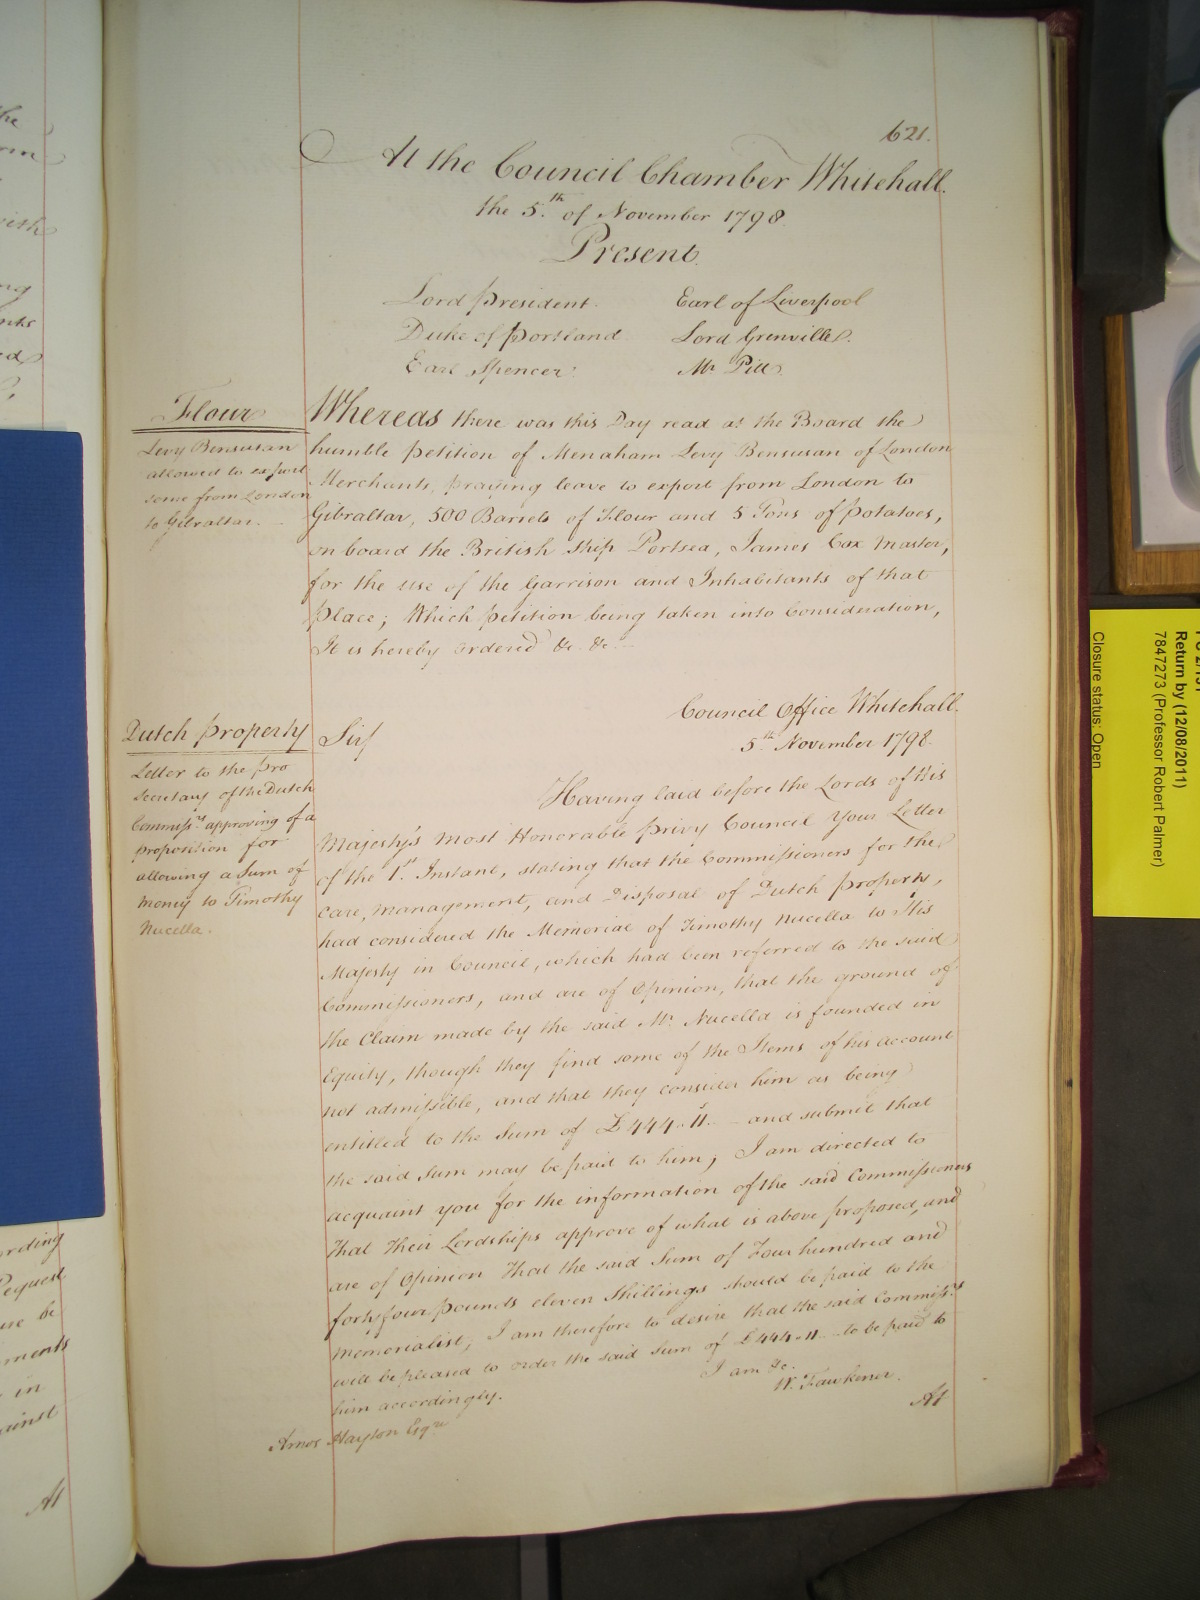 621.
At the Council Chamber Whitehall.
the 5.th of November 1798
Present
Lord President. Earl of Liverpool
Duke of Portland Lord Grenville.
Earl Spencer. Mr Pitt
Flour
Levy Bensusan
allowed to export
some from London
to Gibraltar.
Whereas there was this Day read at the Board the
humble petition of Menaham Levy Bensusan of London
Merchants, praying leave to export from London to
Gibraltar, 500 Barrels of Flour and 5 Tons of Potatoes,
on board the British Ship Portsea, James Cax Master,
for the use of the Garrison and Inhabitants of that
Place; Which petition being taken into Consideration,
It is hereby ordered &c. &c.
Council Office Whitehall.
5th November 1798.
Dutch Property
Letter to the pro
Secretary of the Dutch
Commissrs approving of a
proposition for
allowing a Sum of
money to Timothy
Nucella.
Sir/
Having laid before the Lords of His
Majesty's most Honorable privy Council Your Letter
of the 1st. Instant, stating that the Commissioners for the
Care, Management, and Disposal of Dutch property,
had considered the Memorial of Timothy Nucella to His
Majesty in Council, which had been referred to the said
Commissioners, and are of Opinion, that the ground of
the Claim made by the said Mr. Nucella is founded in
Equity, though they find some of the Items of his account
not admissible, and that they consider him as being
entitled to the Sum of £444..11s.. and submit that
the said Sum may be paid to him; I am directed to
acquaint you for the information of the said Commissioners
That Their Lordships approve of what is above proposed, and
are of Opinion That the said Sum of Four hundred and
forty four pounds eleven Shillings should be paid to the
Memorialist, I am therefore to desire that the said Commissrs
will be pleased to order the said Sum of £444..11 to be paid to
him accordingly.
I am &c.
W. Fawkener.
Amos Hayton Esqre
At
the
with
ng
ed
rding
Request
be
ments
in
ainst
At
Return by (12/08/2011)
7847273 (Professor Robert Palmer)
Closure status: Open